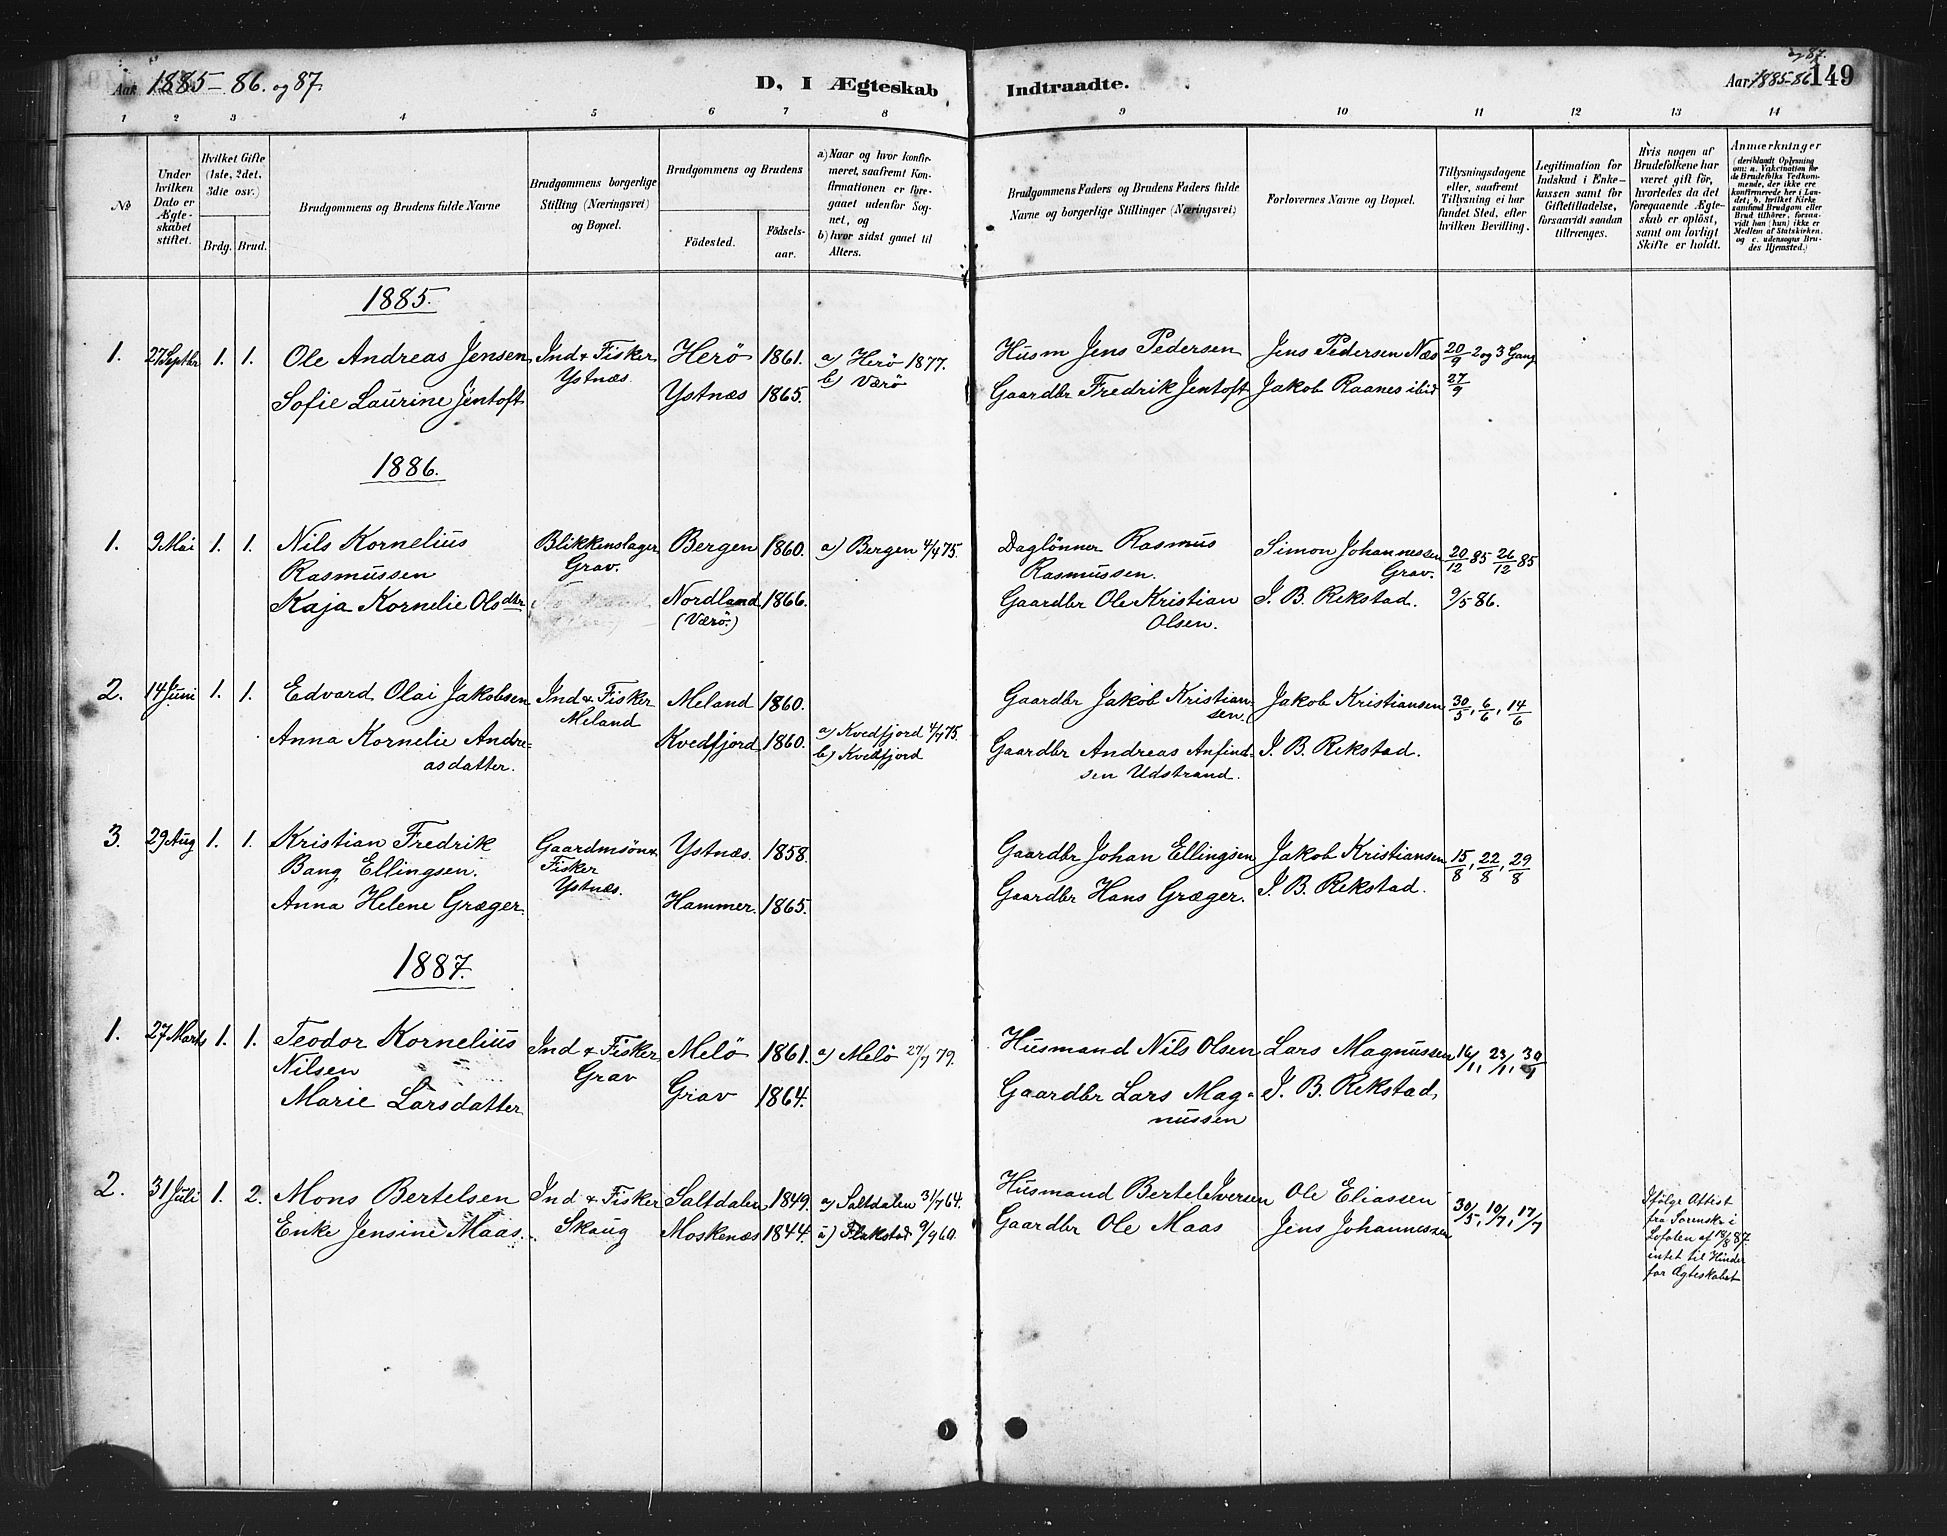 Aar 1885-86. og 87.
D, I Ægteskab Indtraadte.
og 87.
Aar 1885-86 149
1 2 3 4 5 6 7 8 9 10 11 12 13 14
No
Under hvilken Dato er Ægteskabet stiftet.
Hvilket Gifte (1ste, 2det, 3die osv.)
Brdg. Brud.
Brudgommens og Brudens fulde Navne
Brudgommens borgerlige Stilling (Næringsvei) og Bopæl.
Brudgommens og Brudens
Fødested.
Fødselsaar.
a) Naar og hvor konfirmeret, saafremt Konfirmationen er foregaaet udenfor Sognet, og
b) hvor sidst gaaet til Alters.
Brudgommens Faders og Brudens Faders fulde Navne og borgerlige Stillinger (Næringsvei)
Forlovernes Navne og Bopæl.
Tillysningsdagene eller, saafremt Tillysning ei har fundet Sted, efter hvilken Bevilling.
Legitimation for Indskud i Enkekassen samt for Giftetilladelse, forsaavidt saadan tiltrænges.
Hvis nogen af Brudefolkene har været gift før, hvorledes da det foregaaende Ægteskab er opløst, samt om lovligt Skifte er holdt.
Anmærkninger
(deriblandt Oplysning om: a. Vakcination for de Brudefolks Vedkommende, der ikke ere konfirmerede her i Landet; b. hvilket Kirkesamfund Brudgom eller Brud tilhører, forsaavidt han (hun) ikke er Medlem af Statskirken, og c. udensogns Brudes Hjemsted.)
1885.
1. 27 Septbr 1. 1. Ole Andreas Jensen Ind & Fisker Herö 1861. a) Herö 1877. Husm Jens Pedersen Jens Pedersen Næs 20/9 2 og 3 Gang
Ystnæs. b) Værö
Sofie Laurine Jentoft Ystnæs 1865. Gaardbr Fredrik Jentoft Jakob Raanes ibid 27/9
1886.
1. 9 Mai 1. 1. Nils Kornelius Blikkenslager Bergen 1860. a) Bergen 4/475. Daglönner Rasmus Simon Johannessen 20/12 85 26/12 85
Rasmussen Grav. Rasmussen. Grav.
Kaja Kornelie Olsdtr Nordland 1866. Gaardbr Ole Kristian J. B. Rekstad. 9/5 86.
(Værö.) Olsen.
2. 14 Juni 1. 1. Edvard Olai Jakobsen Ind & Fisker Meland 1860. Gaardbr Jakob Kristian- Jakob Kristiansen 30/5, 6/6, 14/6
Meland sen.
Anna Kornelie Andre- Kvedfjord 1860. a) Kvedfjord 4/475. Gaardbr Andreas Anfind- J. B. Rekstad.
asdatter. b) Kvedfjord sen Udstrand.
3. 29 Aug 1. 1. Kristian Fredrik Gaardmsön & Ystnæs. 1858. Gaardbr Johan Ellingsen Jakob Kristiansen 15/8, 22/8, 29/8
Bang Ellingsen. Fisker
Ystnæs.
Anna Helene Græger. Hammer. 1865. Gaardbr Hans Græger. J. B. Rekstad.
1887.
1. 27 Marts 1. 1. Teodor Kornelius Ind & Fisker Melö 1861. a) Melö 27/7 79. Husmand Nils Olsen Lars Magnussen 16/1, 23/1, 30/1
Nilsen Grav
Marie Larsdatter Grav 1864. Gaardbr Lars Mag- J. B. Rekstad.
nussen
2. 31 Juli 1. 2. Mons Bertelsen Ind & Fisker Saltdalen 1849. a) Saltdalen 31/7 64. Husmand Bertel Iversen Ole Eliassen 30/5, 10/7, 17/7
Enke Jensine Maas. Skaug Moskenæs 1844. a) Flakstad 9/9 60. Gaardbr Ole Maas Jens Johannessen
Ifølge Attest
fra Sorenskr i
Lofoten af 18/8 87.
intet til Hinder
for Ægteskabet